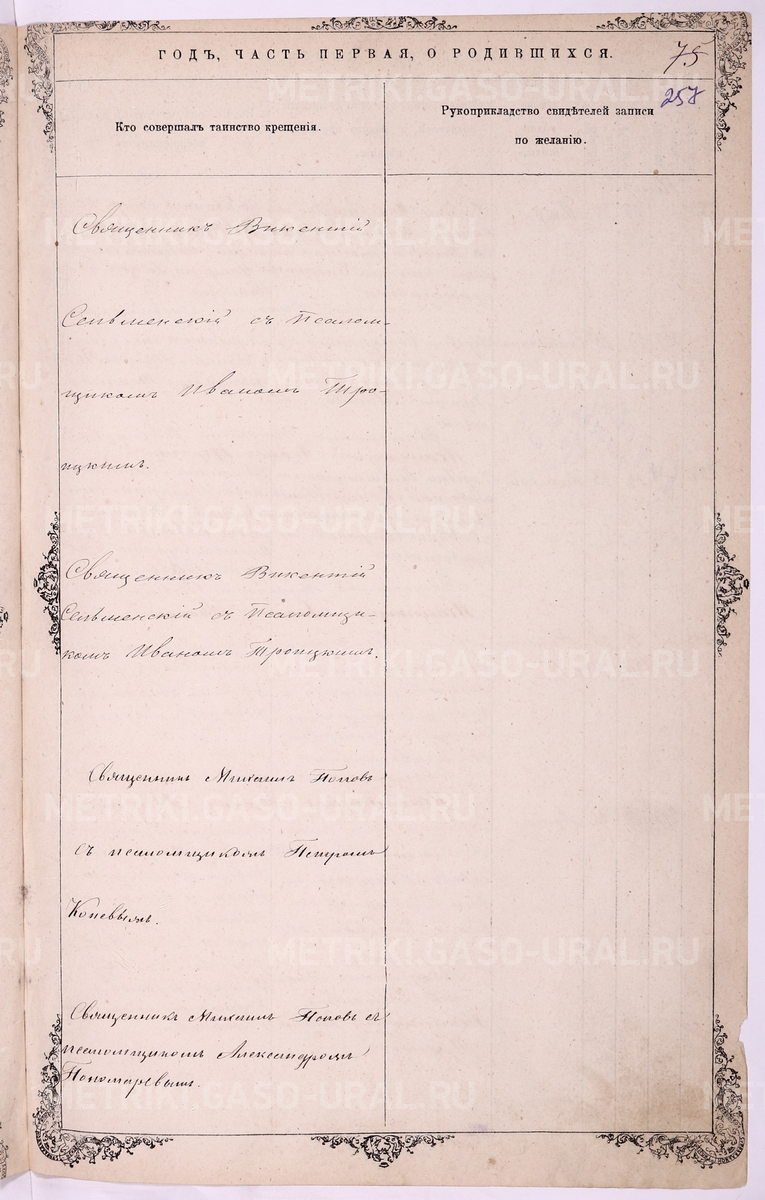 ГОДЪ, ЧАСТЬ ПЕРВАЯ, О РОДИВШИХСЯ.
75
257
Кто совершалъ таинство крещенія.
Рукоприкладство свидѣтелей записи
по желанію.
Священникъ Викентій
Сельменскій съ Псалом-
щикомъ Иваномъ Тро-
ицкимъ.
Священникъ Викентій
Сельменскій съ Псаломщи-
комъ Иваномъ Троицкимъ.
Священникъ Михаилъ Поповъ
съ псаломщикомъ Петромъ
Коневымъ.
Священникъ Михаилъ Поповъ съ
псаломщикомъ Александромъ
Пономаревымъ.
METRIKI.GASO-URAL.RU